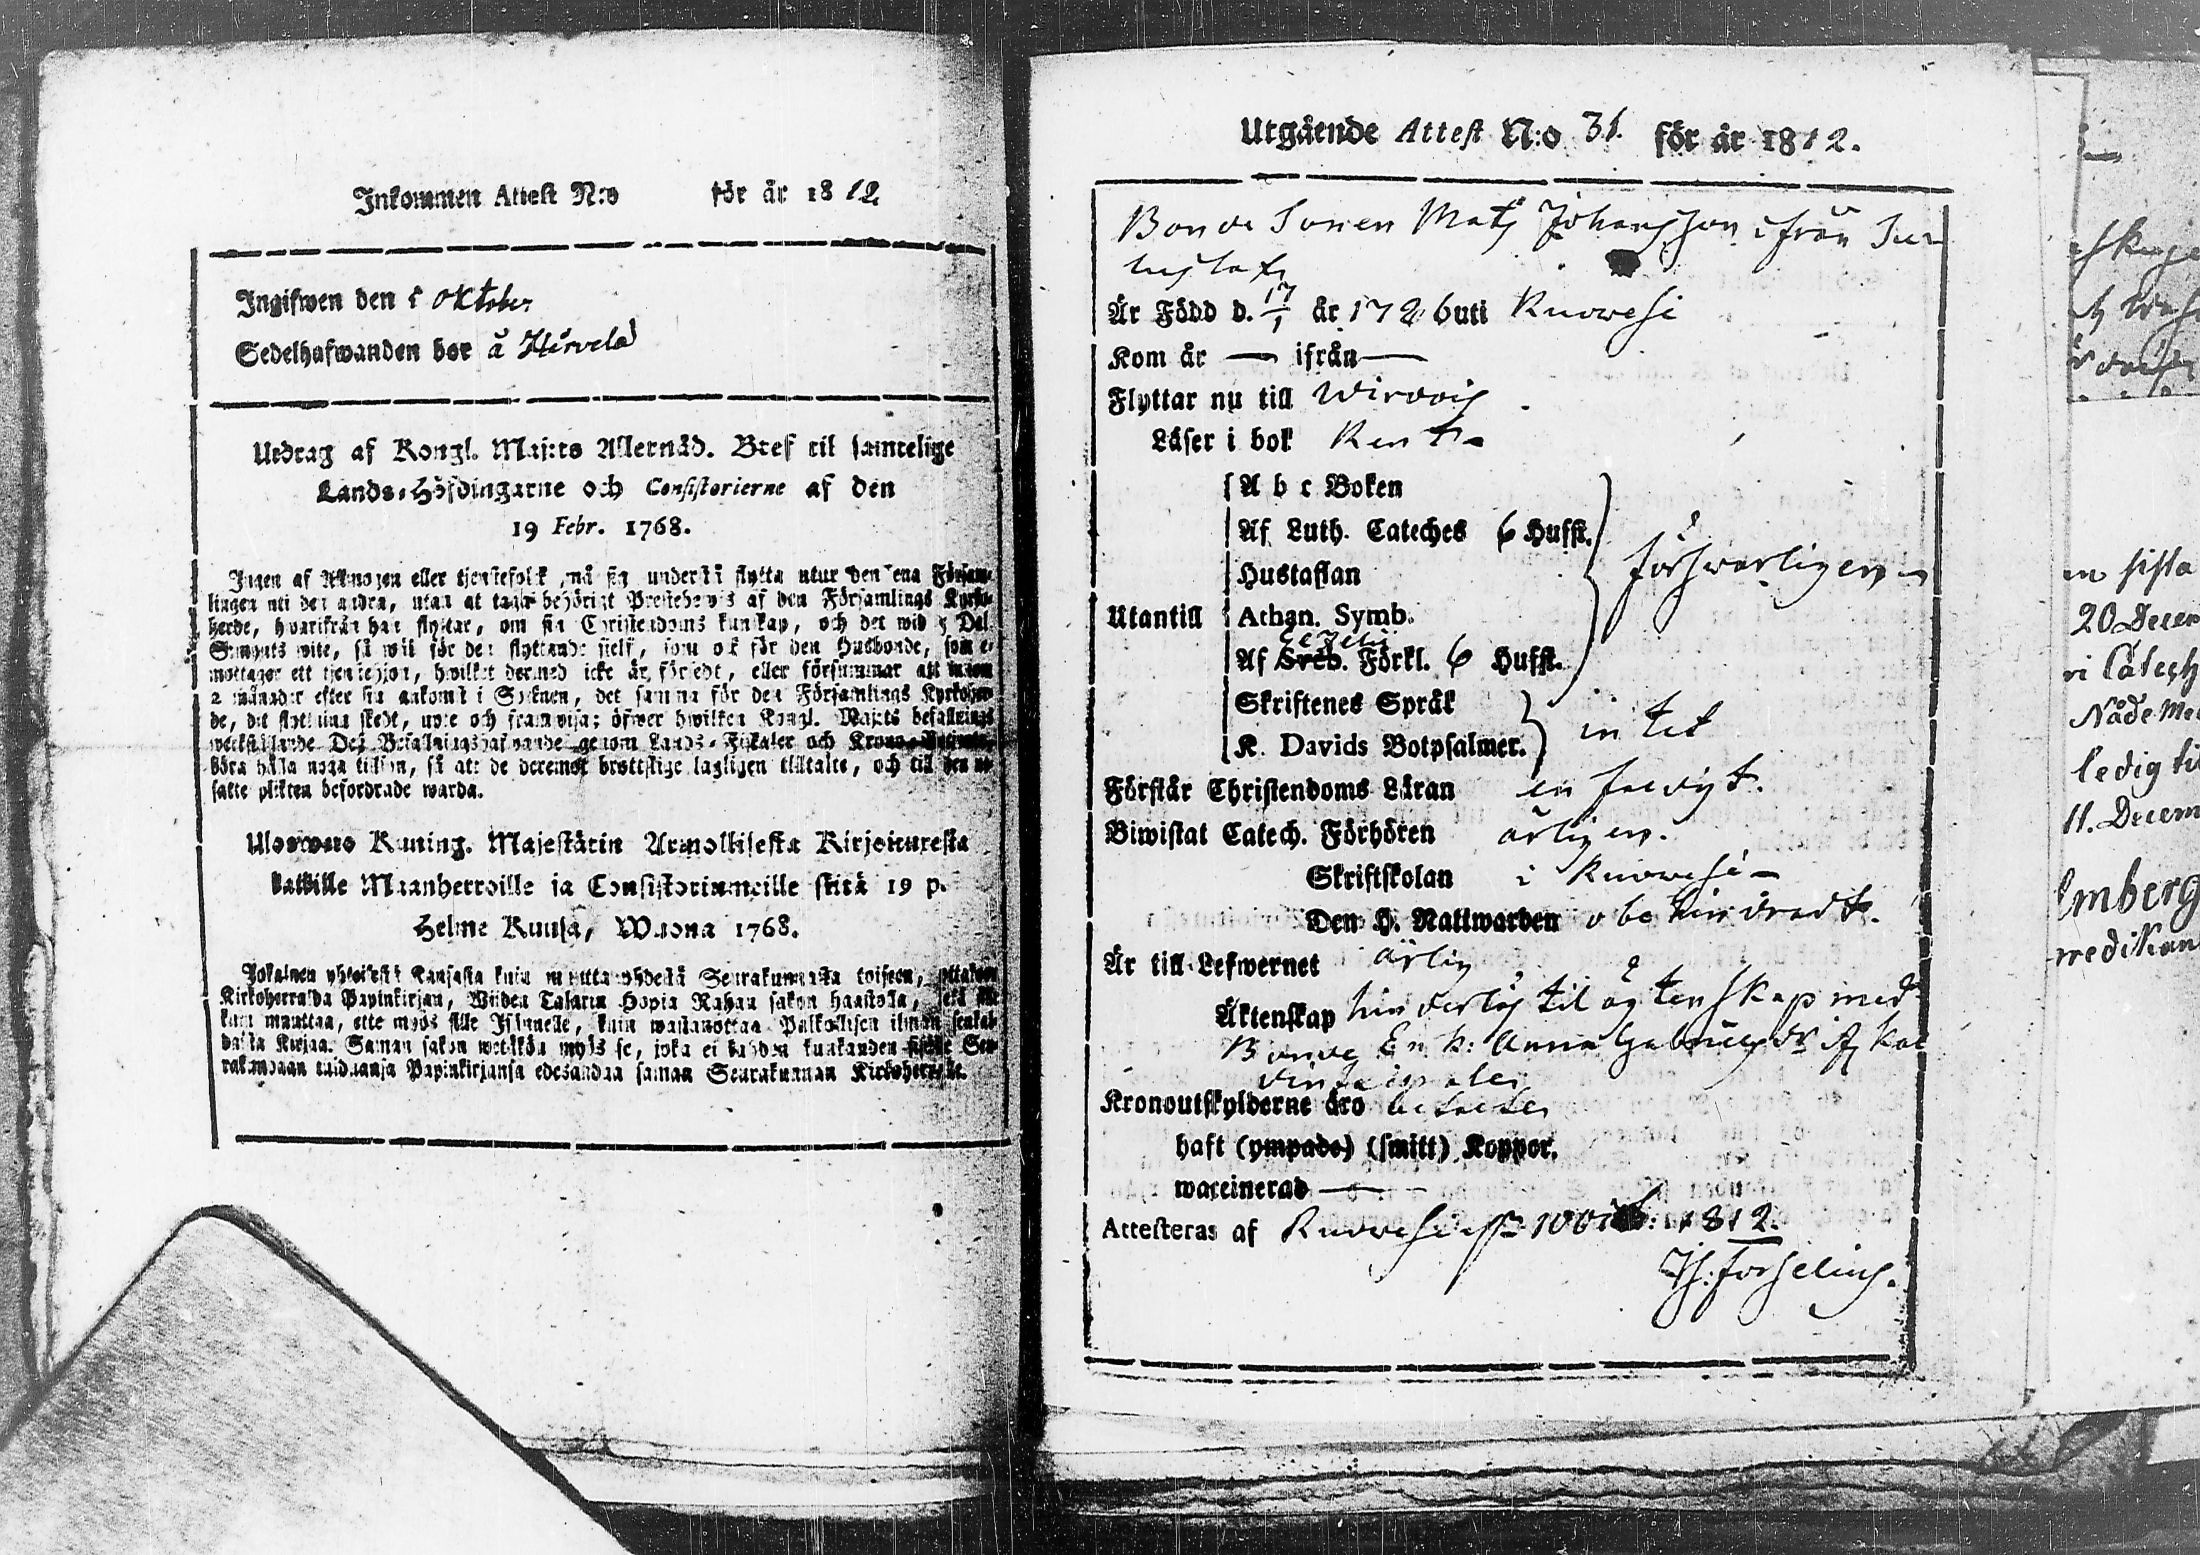 Inkommen Attest N:o för år 1812
Ingifwen den i oktober
Sedelhafwanden bor å Hirvelä
Utdrag af Kongl. Maj:ts Allernåd. Bref til samtelige
Lands-Höfdingarne och Consistorierne af den
19 Febr. 1768.
Ingen af Allmogen eller tjenstefolck, må sig understå flytta utur den ena Försam-
lingen uti den andra, utan at taga behörigt Prestebewis af den Församlings Kyrko-
herde, hvarifrån han flyttar, om sin Christendoms kunskap, och det wid 5 Dal.
Smynts wite, så wäl för den flyttande sielf, som ock för den Husbonde, som e-
mottager ett tjenstehjon, hwilket dermed icke är försedt, eller försummar att inom
2 månader efter sin ankomst i Socknen, det samma för den Församlings Kyrkoher-
de, dit flyttning skedt, upte och framwisa; öfwer hwilken Kongl. Maj:ts befallnings
werkställande Des Befallningshafwande genom Lands-Fiskaler och Krono-Betjente,
böra hålla noga tillsyn, så att de deremot brottslige lagligen tilltalte, och till den ut-
satte plikten befordrade warda.
Ulosweto Kuning. Majestätin Armollisesta Kirjoituresta
kaikille Maanherroille ja Consistoriumeille siitä 19 p.
Helme Kuusa, Wuonna 1768.
Jokainen yhteisestä Kansasta kuin muutta yhdestä Seurakunnasta toiseen, ottakon
Kirkoherralda Papinkirjan, Wiiden Talarin Hopia Rahan sakon haastolla, sekä se
kuin muuttaa, ette myös sille Isännelle, kuin wastanottaa Palkollisen ilman senkal-
daista Kirjaa. Saman sakon wetäkön myös se, joka ei kahden kuukauden sisälle Seu-
rakundaan tulduansa Papinkirjansa edesandaa saman Seurakunnan Kirkoherralle.
Utgående Attest N:o 31. för år 1812.
Bonde Sonen Mats Johansson ifrån
Är Född d. 17/1 år 1786 uti Ruovesi
Kom år — ifrån —
Flyttar nu till Wirdois
Läser i bok Rent
A b c Boken
Af Luth. Cateches 6 Hufst.
Hustaflan
försvarligen
Utantill Athan. Symb.
Gezelii
Af Sveb. Förkl. 6 Hufst.
Skriftenes Språk
K. Davids Botpsalmer.
intet
Förstår Christendoms Läran enfaldigt.
Biwistat Catech. Förhören årligen.
Skriftskolan i Ruovesi
Den H. Nattwarden obehindradt.
Är till Lefwernet ärlig
Äktenskap hinderlös til ägtenskap med
Bonde Enk: Anna Gabrielsdr if
Kronoutskylderne äro betalde
haft (ympade) (smitt) Koppor.
waccinerad —
Attesteras af Ruovesi 1812.
Forselius.